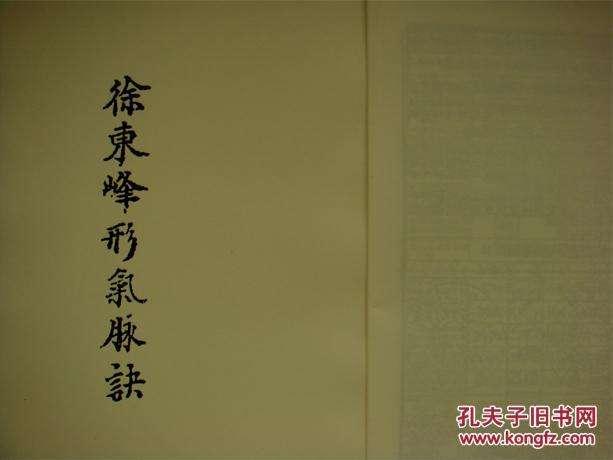 徐東峰形氣脉訣
孔夫子旧书网
www.kongfz.com